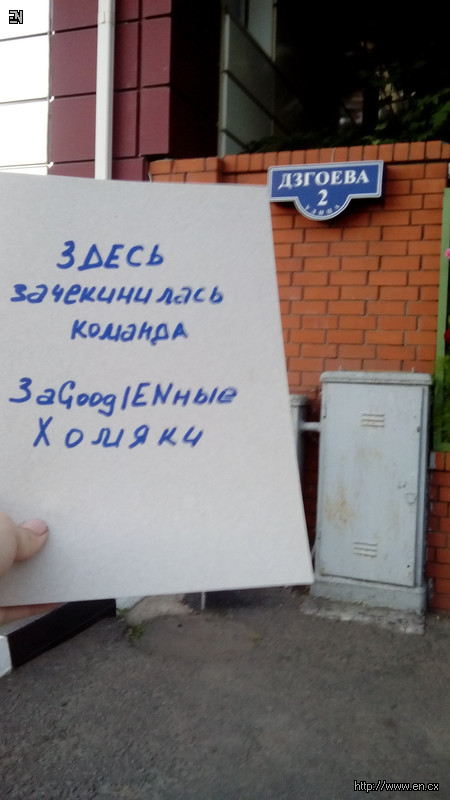 EN
ДЗГОЕВА
2
улица
ЗДЕСЬ
зачекинилась
команда
ЗаGooglENные
Хомяки
http://www.en.cx